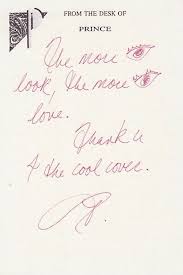 FROM THE DESK OF
PRINCE
The more 👁
look, the more 👁
love.
Thank u
4 the cool cover.